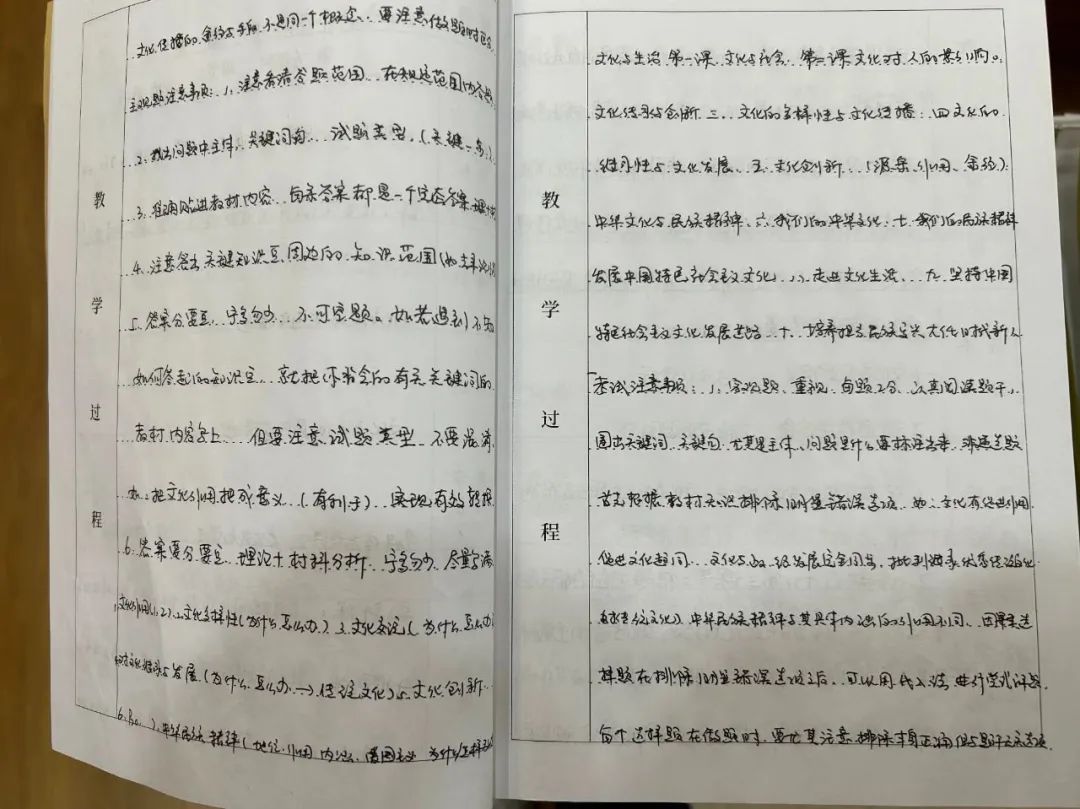 教学过程
文化传播的途径与手段,不是同一个概念,要注意做题时
主观题注意事项:1、注意看清答题范围,在规定范围内
2、找出问题中主体,关键词句,试题类型,(关键一步)
3、准确贴近教材内容,每条答案都是一个完整答案
4、注意答出关键知识点周边的知识范围
5、答案分要点,宁多勿少,不可空题。如若遇到不知
如何答起的知识点,就把你学会的有关关键词的
教材内容写上,但要注意试题类型,不要混淆
如:把文化作用把成意义(有利于),实现有效转换
6、答案要分要点,理论+材料分析,宁多勿少,尽量写满
文化作用(1,2)、2、文化多样性(为什么、怎么办)3、文化交流(为什么、怎么办
文化继承与发展(为什么、怎么办→传统文化)5、文化创新
中华民族精神(地位、作用、内涵、爱国主义、为什么怎样
教学过程
文化与生活 第一课 文化与社会 第二课 文化对人的影响。
文化传承与创新 三、文化的多样性与文化传播:四 文化的
继承性与文化发展、五、文化创新(源泉、作用、途径):
中华文化与民族精神、六、我们的中华文化、七、我们的民族精神
发展中国特色社会主义文化、八、走进文化生活、九、坚持中国
特色社会主义文化发展道路 十、培养担当民族复兴大任的时代新人
考试注意事项:1、客观题、重视、每题2分、认真阅读题干,
圈出关键词、关键句,尤其是主体、问题是什么要标注出来,
首先根据教材知识排除明显错误选项,如:文化有促进作用
促进文化趋同、文化与政、经发展完全同步,批判继承优秀传统文化
中华民族精神与其具体内涵的作用不同、因果
择题在排除明显错误选项之后,可以用代入法进行尝试解题,
每个选择题在做题时,要尤其注意排除本身正确但与题干无关选项